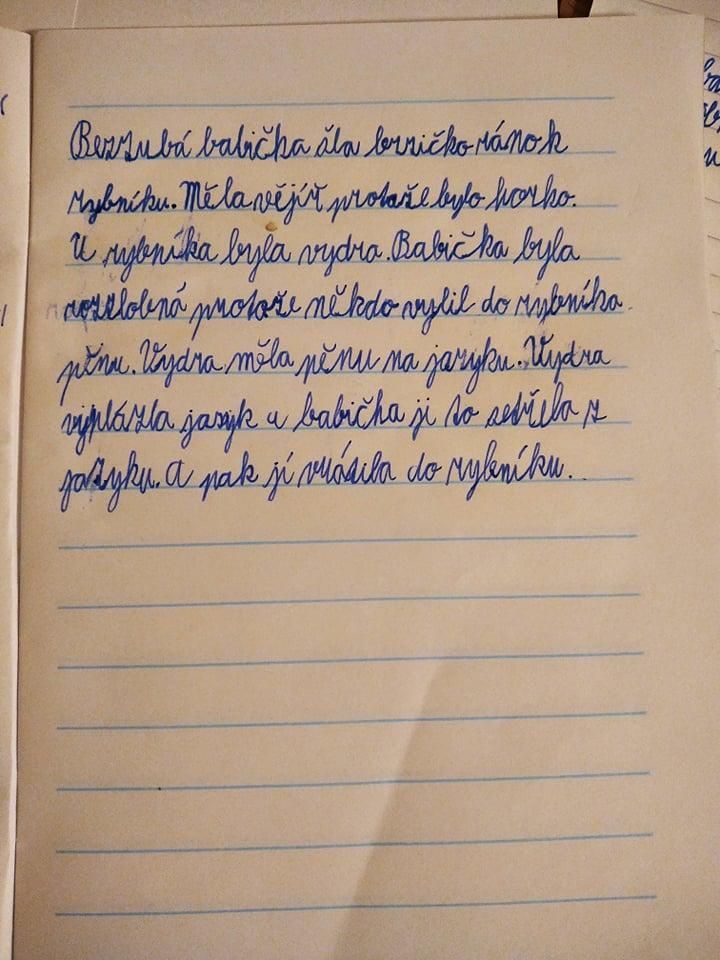 Bezzubá babička šla brzičko ráno k
rybníku. Měla vějíř protože bylo horko.
U rybníka byla vydra. Babička byla
rozzlobená protože někdo vylil do rybníka
pěnu. Vydra měla pěnu na jazyku. Vydra
vyplázla jazyk a babička ji to setřela z
jazyku. A pak jí vrátila do rybníku.